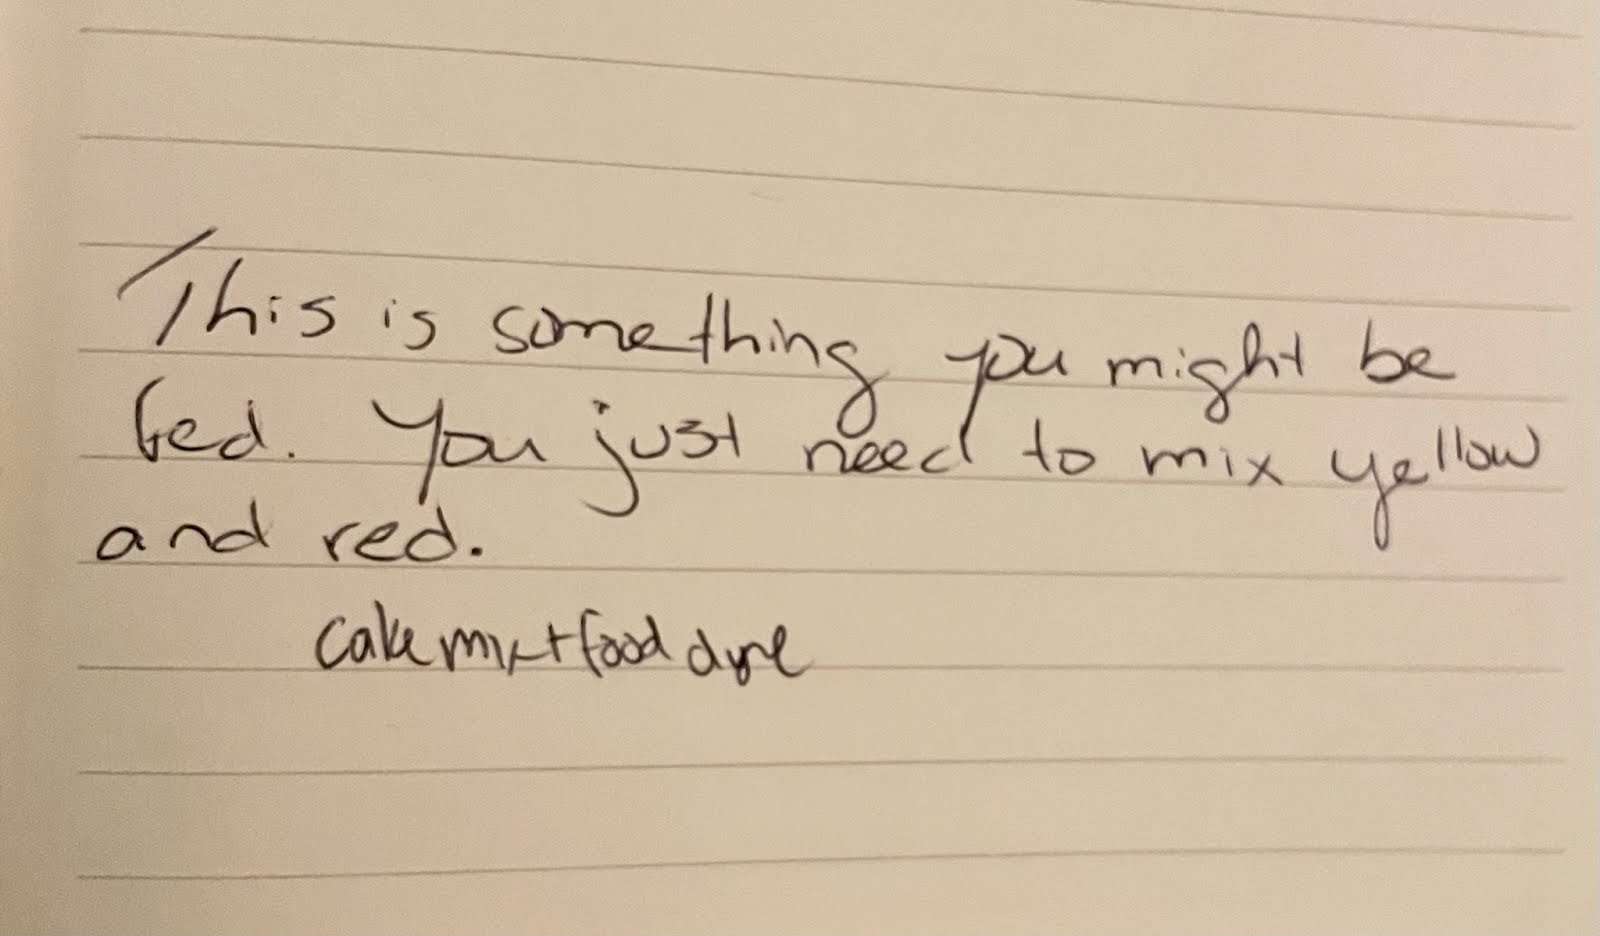 This is something you might be
fed. You just need to mix yellow
and red.
cake mix + food dye